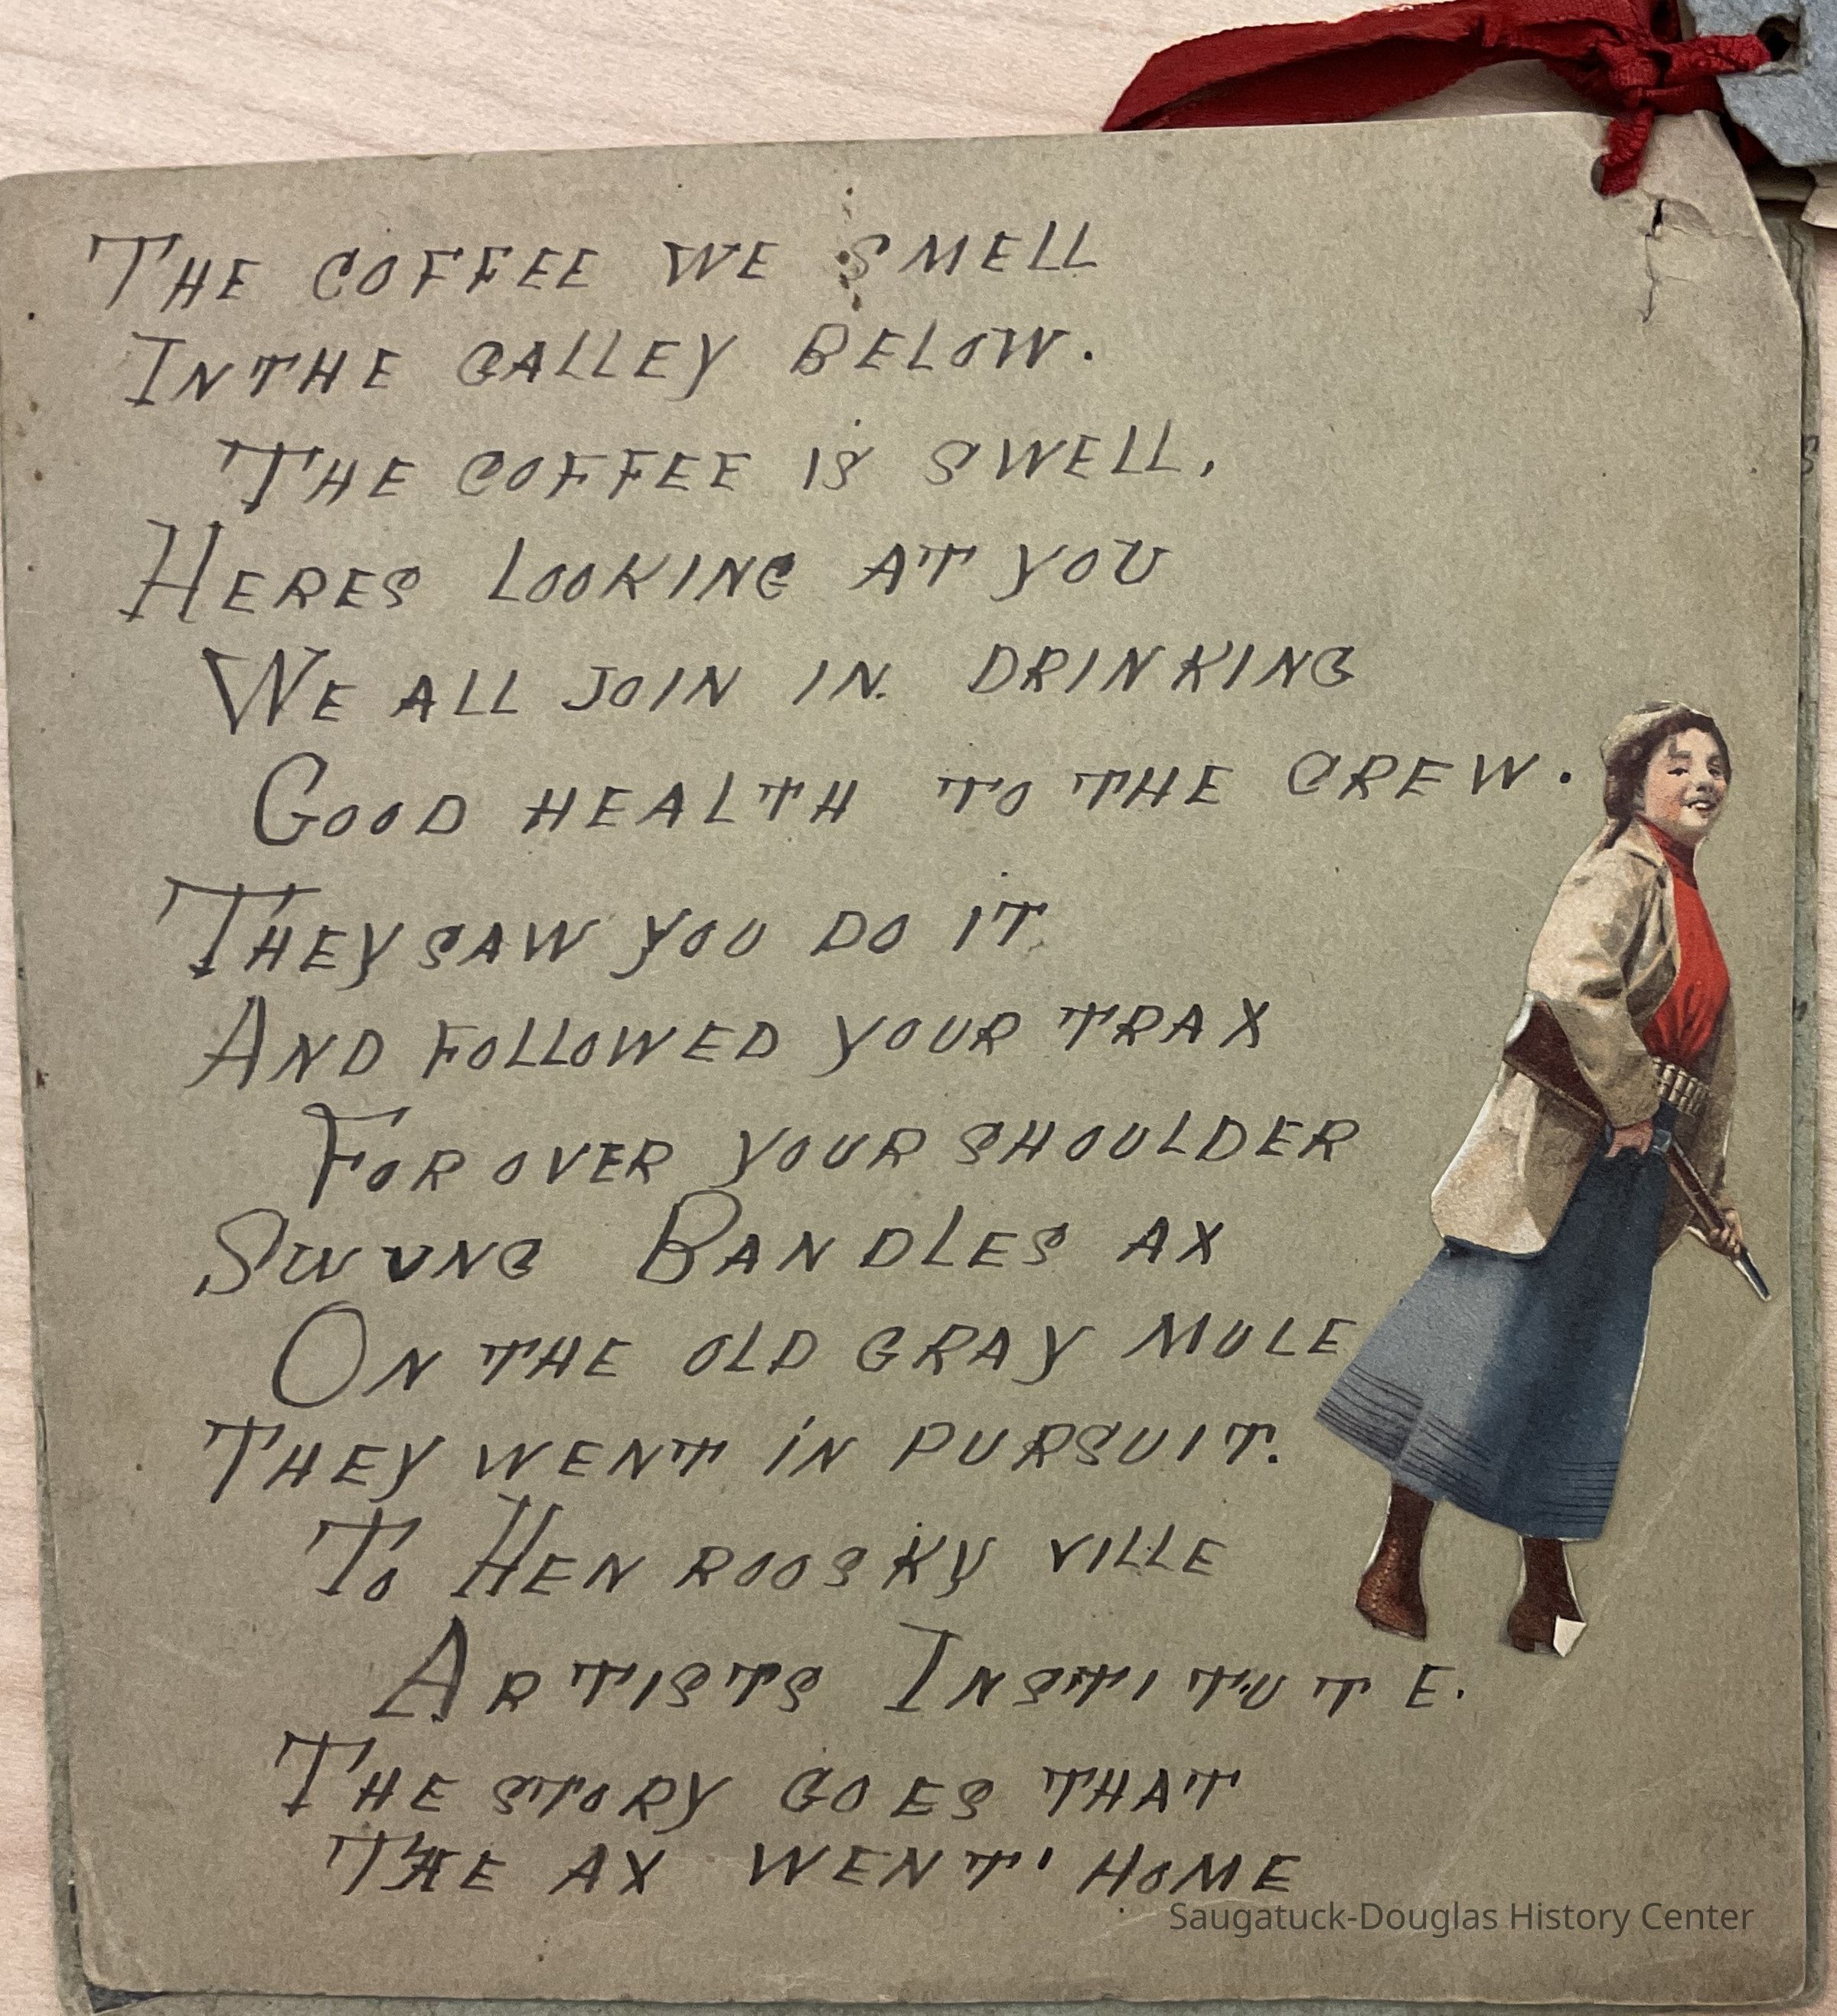 THE COFFEE WE SMELL
IN THE GALLEY BELOW.
THE COFFEE IS SWELL,
HERES LOOKING AT YOU
WE ALL JOIN IN. DRINKING
GOOD HEALTH TO THE CREW.
THEY SAW YOU DO IT
AND FOLLOWED YOUR TRAX
FOR OVER YOUR SHOULDER
SWUNG BANDLES AX
ON THE OLD GRAY MULE
THEY WENT IN PURSUIT.
TO HEN ROOSKY VILLE
ARTISTS INSTITUTE.
THE STORY GOES THAT
THE AX WENT HOME
Saugatuck-Douglas History Center